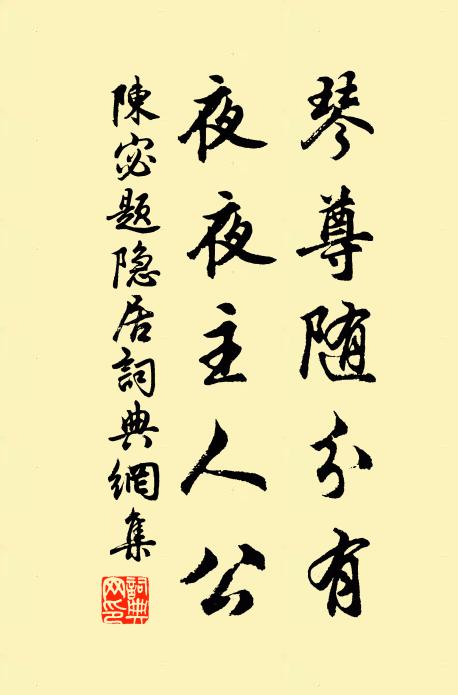 琴尊随分有
夜夜主人公
陳宓题隐居詞典網集
詞典网印